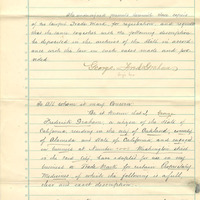 The undersigned presents herewith
of his lawful Trade Mark for registration and request
that the same together with the following description
be deposited in the archives of the State in accord-
ance with the law in such cases made and pro-
vided.
George Frederick
To All Whom it may Concern
Be it known that I, George
Frederick Graham, a citizen of the State of
California, residing in the City of Oakland, County
of Alameda and State of California, and engaged
in business at Number Washington Street
in the said City, have adopted for use in my
business a Trade Mark for
Medicines of which the following is a full
clear and exact description